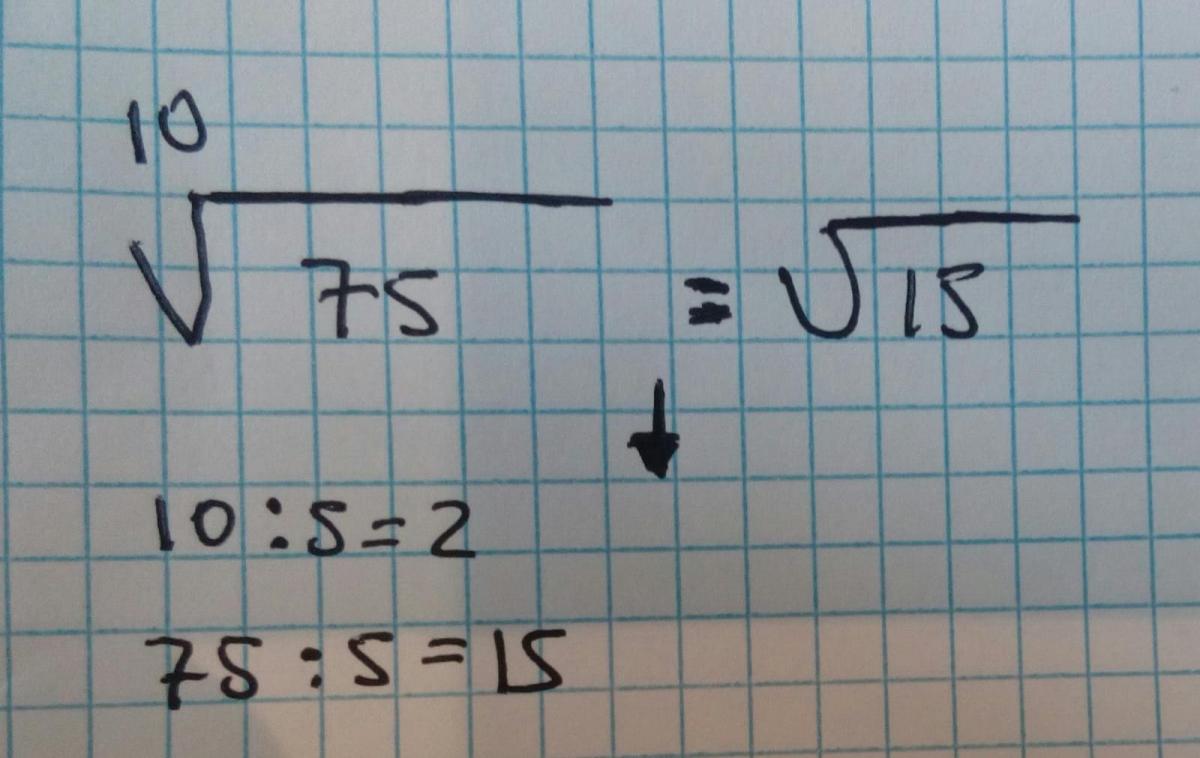 10
√75 = √15
↓
10:5=2
75:5=15